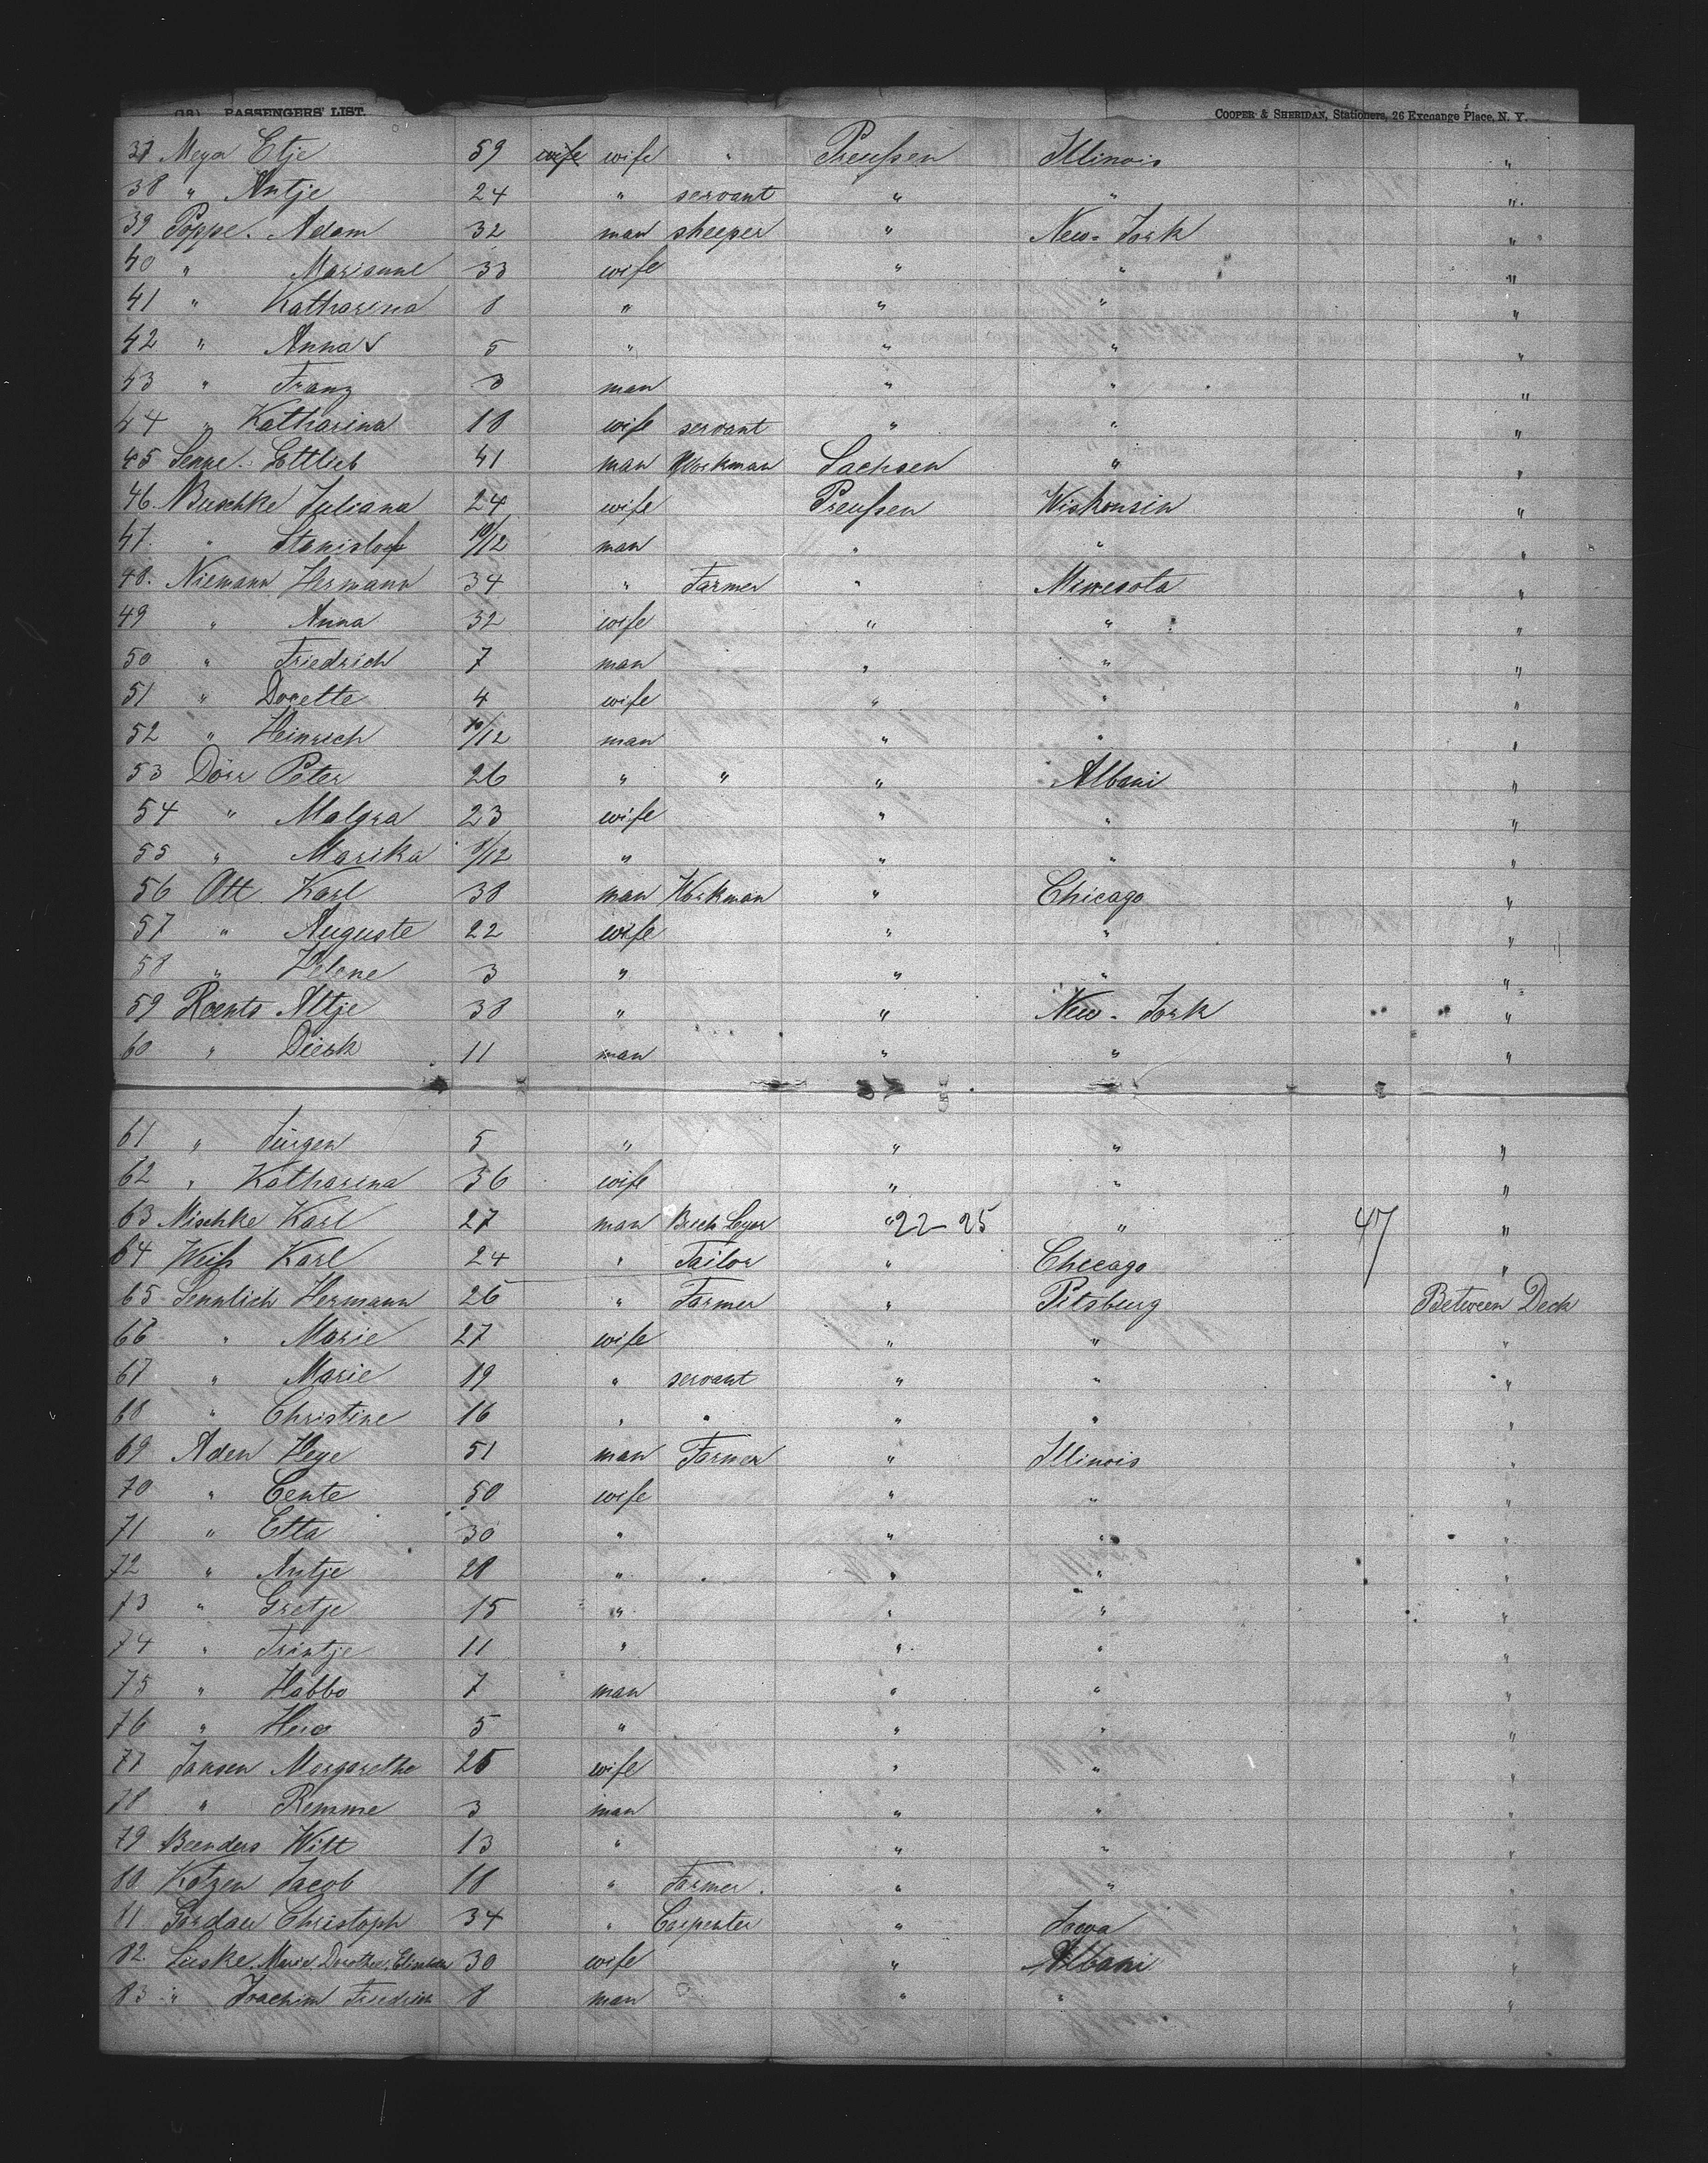 (18) PASSENGERS' LIST. COOPER & SHERIDAN, Stationers, 26 Exchange Place, N. Y.
37 Meyer Etje 59 wife wife " Preußen Illinois "
38 " Antje 24 " servant " " "
39 Poppe. Adam 32 man sheeper " New-York "
40 " Marianne 33 wife " " "
41 " Katharina 8 " " " "
42 " Anna 5 " " " "
43 " Franz 3 man " " "
44 " Katharina 18 wife servant " " "
45 Senne. Gottlieb 41 man Workman Sachsen " "
46. Buschke Juliana 24 wife Preußen Wiskonsin "
47 " Stanislof 10/12 man " " "
48. Niemann Hermann 34 " Farmer " Minesota "
49 " Anna 32 wife " " "
50 " Friedrich 7 man " " "
51 " Dorette 4 wife " " "
52 " Heinrich 10/12 man " " "
53 Dörr Peter 26 " " " Albani "
54 " Malgra 23 wife " " "
55 " Marika /12 " " " "
56 Ott Karl 38 man Workman " Chicago "
57 " Auguste 22 wife " " "
58 " Helene 3 " " " "
59 Roents Altje 38 " " New-York "
60 " Dierk 11 man " " "
61 " Jürgen 5 " " " "
62 " Katharina 36 wife " " "
63 Mischke Karl 27 man " 22-25 " 47 "
64 Weiß Karl 24 " Tailor " Chicago "
65 Sennlich Hermann 26 " Farmer " Pitsburg Between Deck
66 " Marie 27 wife " " "
67 " Marie 19 " servant " " "
68 " Christine 16 " " " " "
69 Aden Heye 51 man Farmer " Illinois "
70 " Cente 50 wife " " "
71 " Etta 30 " " " "
72 " Antje 28 " " " "
73 " Gretje 15 " " " "
74 " Trintje 11 " " " "
75 " Habbo 7 man " " "
76 " Heie 5 " " " "
77 Jansen Margarethe 25 wife " " "
78 " Remme 3 man " " "
79 Beenders Wilt 13 " " " "
80 Kotzen Jacob 18 " Farmer. " " "
81 Gardau Christoph 34 " Carpenter " Iowa "
82. Lüske. Marie Dorothea 30 wife " Albani "
83 " Joachim Friedrich 8 man " " "